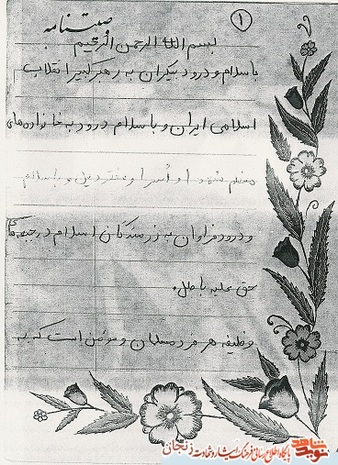 ۱
وصیتنامه
بسم الله الرحمن الرحیم
با سلام و درود بیکران به رهبر کبیر انقلاب
اسلامی ایران و با سلام و درود به خانواده‌های
معظم شهدا و اسرا و مفقودین و با سلام
و درود فراوان به رزمندگان اسلام در جبهه‌های
حق علیه باطل.
وظیفه هر فرد مسلمان و مؤمن است که به
نوید شاهد
پایگاه اطلاع رسانی فرهنگ ایثار و شهادت زنجان